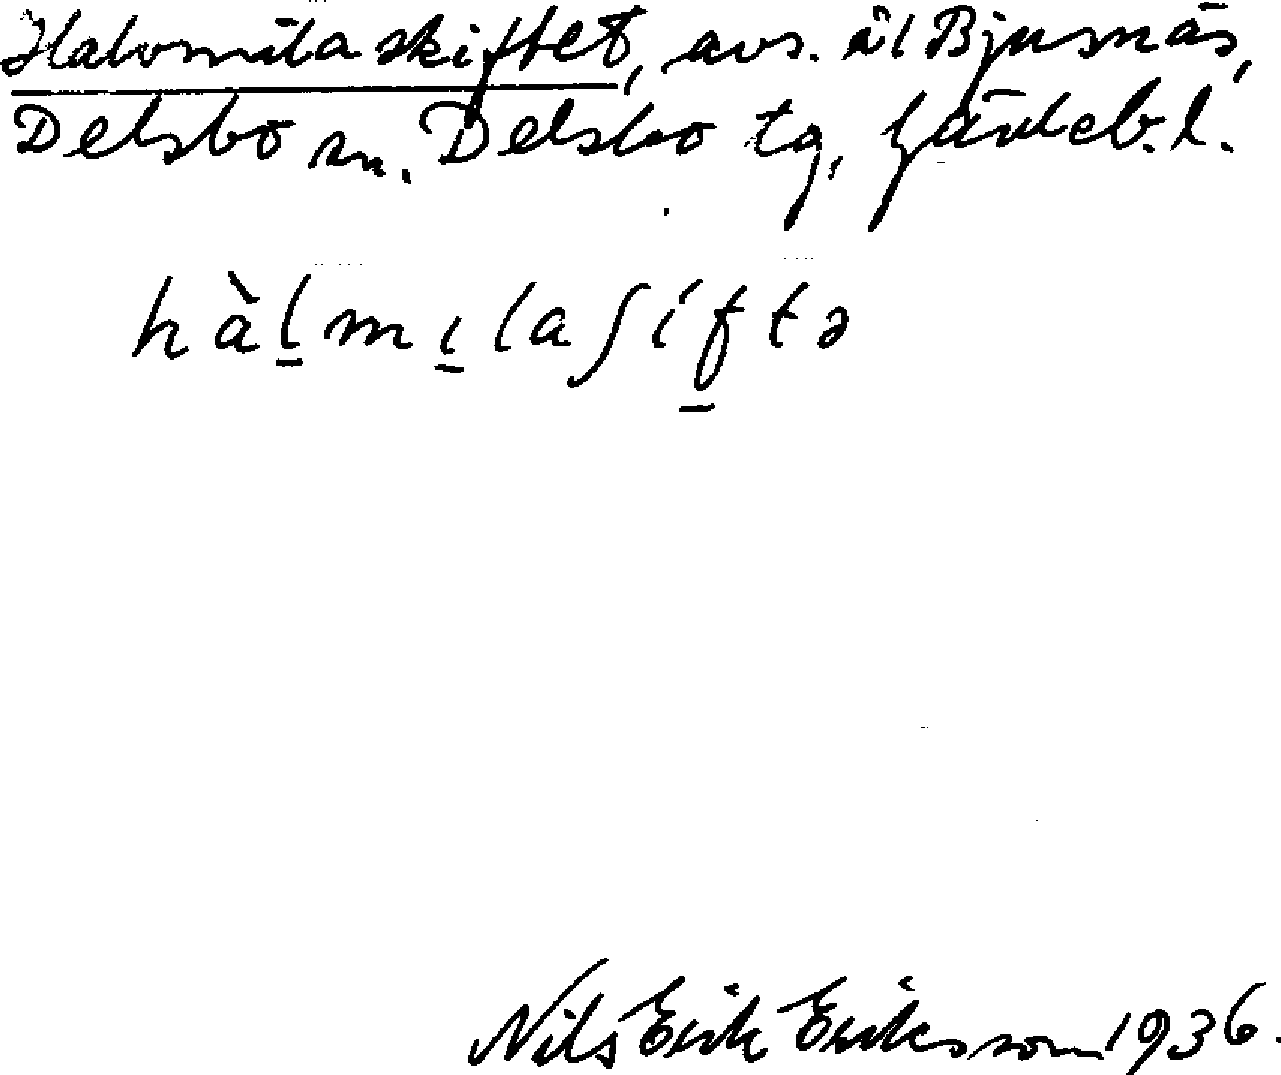 Halvmilaskiftet, avs. ål Bjusnäs,
Delsbo sn. Delsbo tg, Gävleb.l.
hàl̠mı̠laʃif̠tə
Nils Erik Eriksson 1936.